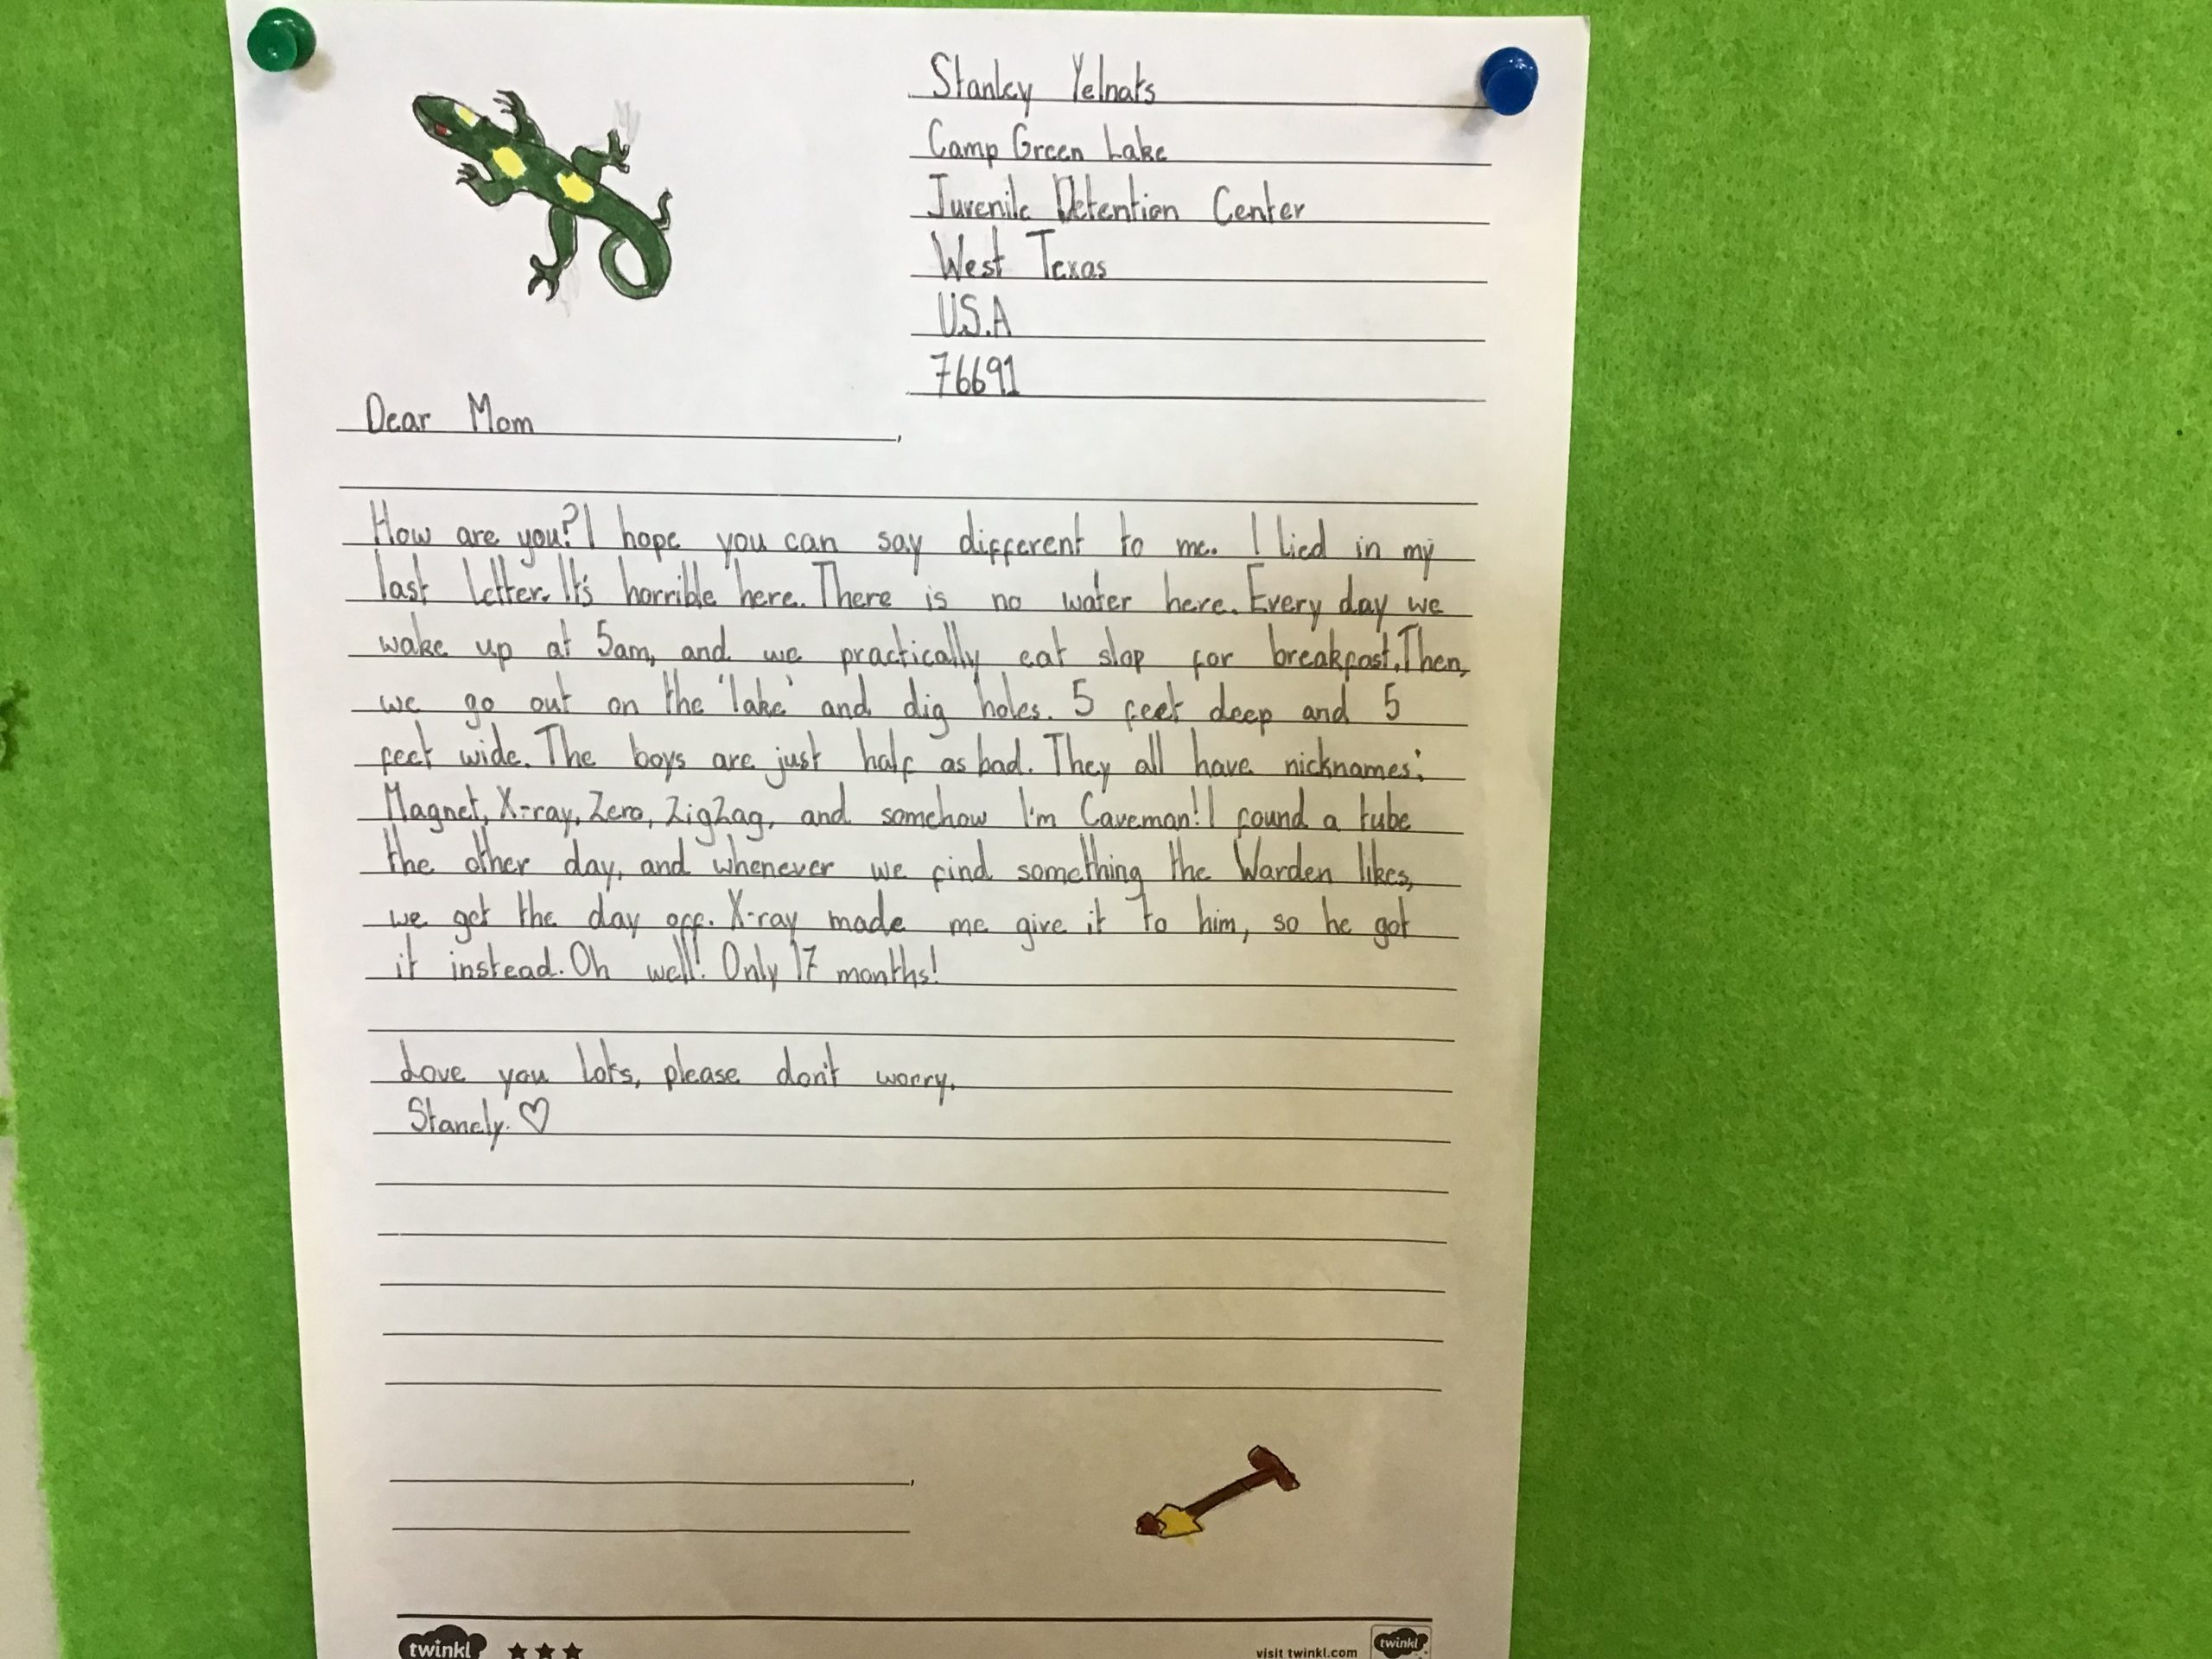 Stanley Yelnats
Camp Green Lake
Juvenile Detention Center
West Texas
U.S.A
76691
Dear Mom,
How are you? I hope you can say different to me. I lied in my
last letter. It's horrible here. There is no water here. Every day we
wake up at 5am, and we practically eat slop for breakfast. Then,
we go out on the 'lake' and dig holes. 5 feet deep and 5
feet wide. The boys are just half as bad. They all have nicknames:
Magnet, X-ray, Zero, ZigZag, and somehow I'm Caveman! I found a tube
the other day, and whenever we find something the Warden likes,
we get the day off. X-ray made me give it to him, so he got
it instead. Oh well! Only 17 months!
Love you lots, please don't worry.
Stanely. ♡
,
twinkl ★★★ visit twinkl.com twinkl